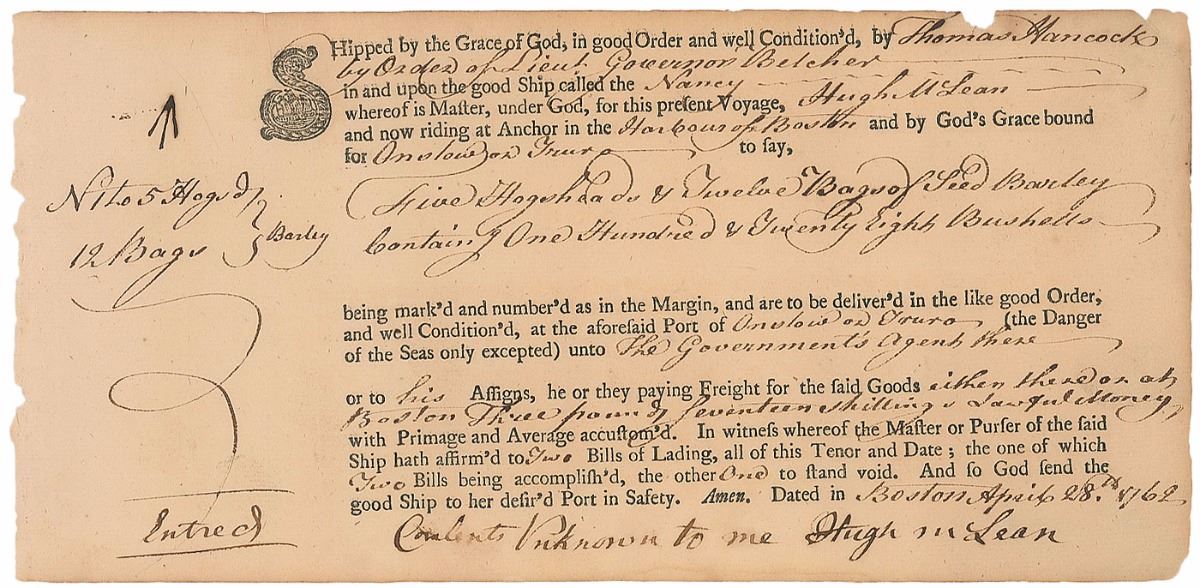 SHipped by the Grace of God, in good Order and well Condition'd, by Thomas Hancock
by Order of Lieut. Governor Belcher
in and upon the good Ship called the Nancy
whereof is Maſter, under God, for this preſent Voyage, Hugh McLean
and now riding at Anchor in the Harbour of Boston and by God's Grace bound
for Onslow or Truro to ſay,
N 1 to 5 Hogsds
12 Bags } Barley
Five Hogsheads & Twelve Bags of Seed Barley
Containg One Hundred & Twenty Eight Bushells
being mark'd and number'd as in the Margin, and are to be deliver'd in the like good Order,
and well Condition'd, at the aforeſaid Port of Onslow or Truro (the Danger
of the Seas only excepted) unto The Government's Agent there
or to his Aſſigns, he or they paying Freight for the ſaid Goods either there or at
Boston Three pounds Seventeen shillings Lawful Money
with Primage and Average accuſtom'd. In witneſs whereof the Maſter or Purſer of the ſaid
Ship hath affirm'd to Two Bills of Lading, all of this Tenor and Date ; the one of which
Two Bills being accompliſh'd, the other One to ſtand void. And ſo God ſend the
good Ship to her deſir'd Port in Safety. Amen. Dated in Boston April 28.th 1762
Entred
Contents Unknown to me Hugh McLean